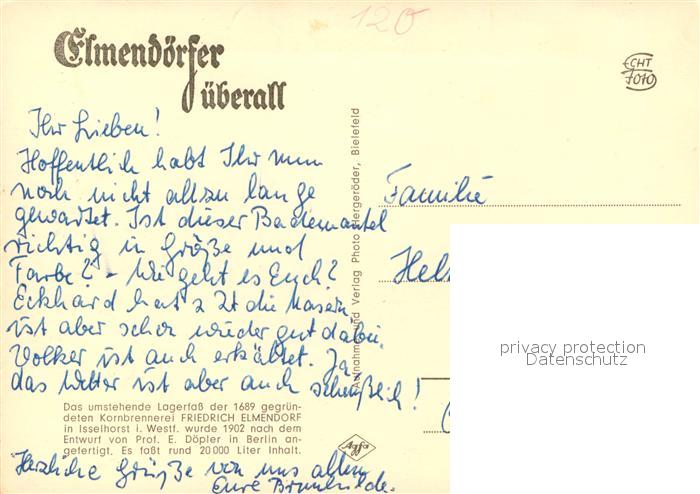 120
Elmendörfer
überall
ECHT
FOTO
Ihr Lieben!
Hoffentlich habt Ihr nun
noch nicht allzu lange
gewartet. Ist dieser Bademantel
richtig in Größe und
Farbe? - Wie geht es Euch?
Eckhard hat z Zt die Masern,
ist aber schon wieder gut dabei.
Volker ist auch erkältet. Ja
das Wetter ist aber auch scheußlich!
Das umstehende Lagerfaß der 1689 gegrün-
deten Kornbrennerei FRIEDRICH ELMENDORF
in Isselhorst i. Westf. wurde 1902 nach dem
Entwurf von Prof. E. Döpler in Berlin an-
gefertigt. Es faßt rund 20000 Liter Inhalt.
Herzliche Grüße von uns allen
Eure Brunhilde.
Aufnahme und Verlag Photo-Hergeröder, Bielefeld
Agfa
Familie
Hel
privacy protection
Datenschutz